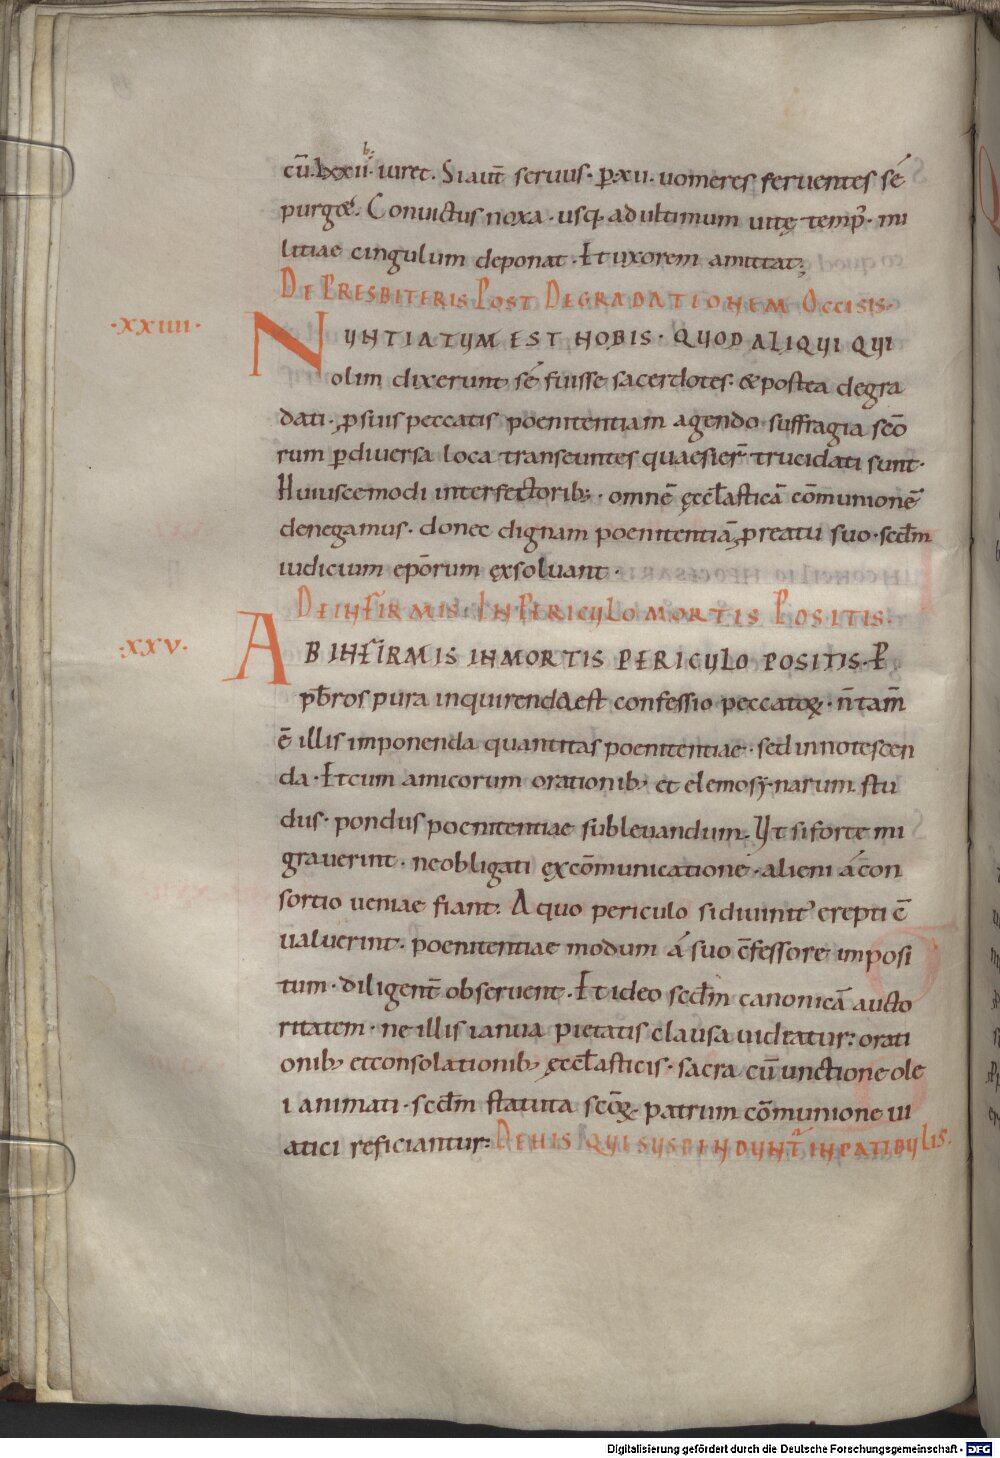 cū. lxxii b; iuret. Si aut̄ seruus. ꝑ. xii. uomeres feruentes sé
purget. Conuictus noxa. usq. ad ultimum uitę temp̄. mi
litiae cingulum deponat. Et uxorem amittat;
DE PRESBITERIS POST DEGRADATIONEM OCCISIS.
.XXIIII.
NUNTIATUM EST NOBIS. QUOD ALIQUI QUI
olim dixerunt sé fuisse sacerdotes. & postea degra
dati. ꝓ suis peccatis poenitentiam agendo suffragia sc̄o
rum ꝑ diuersa loca transeuntes quaesier̄ trucidati sunt.
Huiuscemodi interfectorib;. omnē ęccl̄asticā cōmunionē
denegamus. donec dignam poenitentiā ꝓ reatu suo. scdm̄
iudicium epōrum exsoluant.
DE INFIRMIS. IN PERICULO MORTIS POSITIS.
.XXV.
AB INFIRMIS IN MORTIS PERICULO POSITIS. P
pb̄ros pura inquirenda est confessio peccatoꝝ. n̄ tam̄
ē illis imponenda quantitas poenitentiae. sed innotescen
da. Et cum amicorum orationib; et elemosynarum stu
dus. pondus poenitentiae subleuandum. Ut si forte mi
grauerint. ne obligati excōmunicatione. alieni á con
sortio ueniae fiant. A quo periculo si diuinit' erepti c̄
ualuerint. poenitentiae modum á suo c̄fessore imposi
tum. diligent̄ obseruent. Et ideo scdm̄ canonicā aucto
ritatem. ne illis ianua pietatis clausa uideatur: orati
onib; et consolationib; ęccl̄asticis. sacra cū unctione ole
i animati. scdm̄ statuta sc̄oꝝ. patrum cōmunione ui
atici reficiantur: DE HIS QUI SUSPENDUNT̃ IN PATIBULIS.
Digitalisierung gefördert durch die Deutsche Forschungsgemeinschaft - DFG